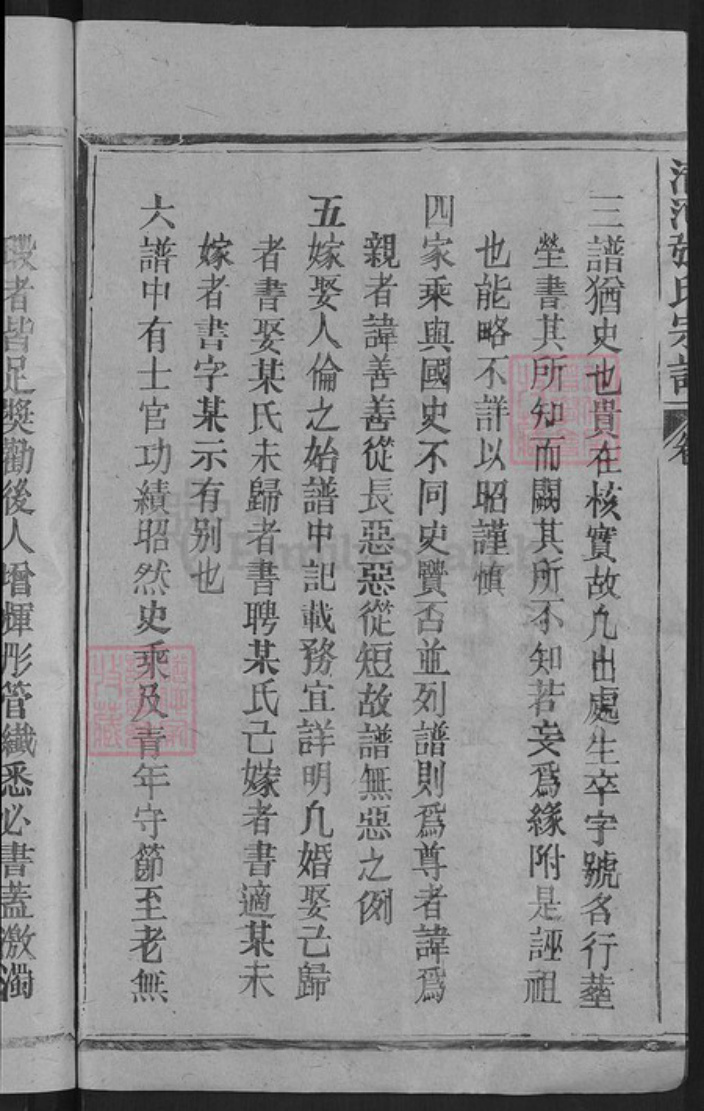 清河張氏宗譜 卷
三譜猶史也貴在核實故凡出處生卒字號名行塟
塋書其所知而闕其所不知若妄爲緣附是誣祖
也能略不詳以昭謹慎
四家乘與國史不同史賢否並列譜則爲尊者諱爲
親者諱善善從長惡惡從短故譜無惡之例
五嫁娶人倫之始譜中記載務宜詳明凡婚娶已歸
者書娶某氏未歸者書聘某氏已嫁者書適某未
嫁者書字某示有别也
六譜中有士官功績昭然史乘及青年守節至老無
瑕者皆足獎勸後人增輝彤管纖悉必書蓋激濁